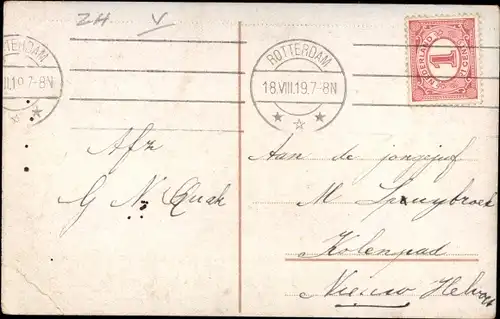 ZH V
ROTTERDAM
18.VIII.19.7-8N
ROTTERDAM
18.VIII.19.7-8N
NEDERLAND
1
CENT
Afz
G N Quak
Aan de jongejuf
M Spuybroek
Kolenpad
Nieuw Helvoet